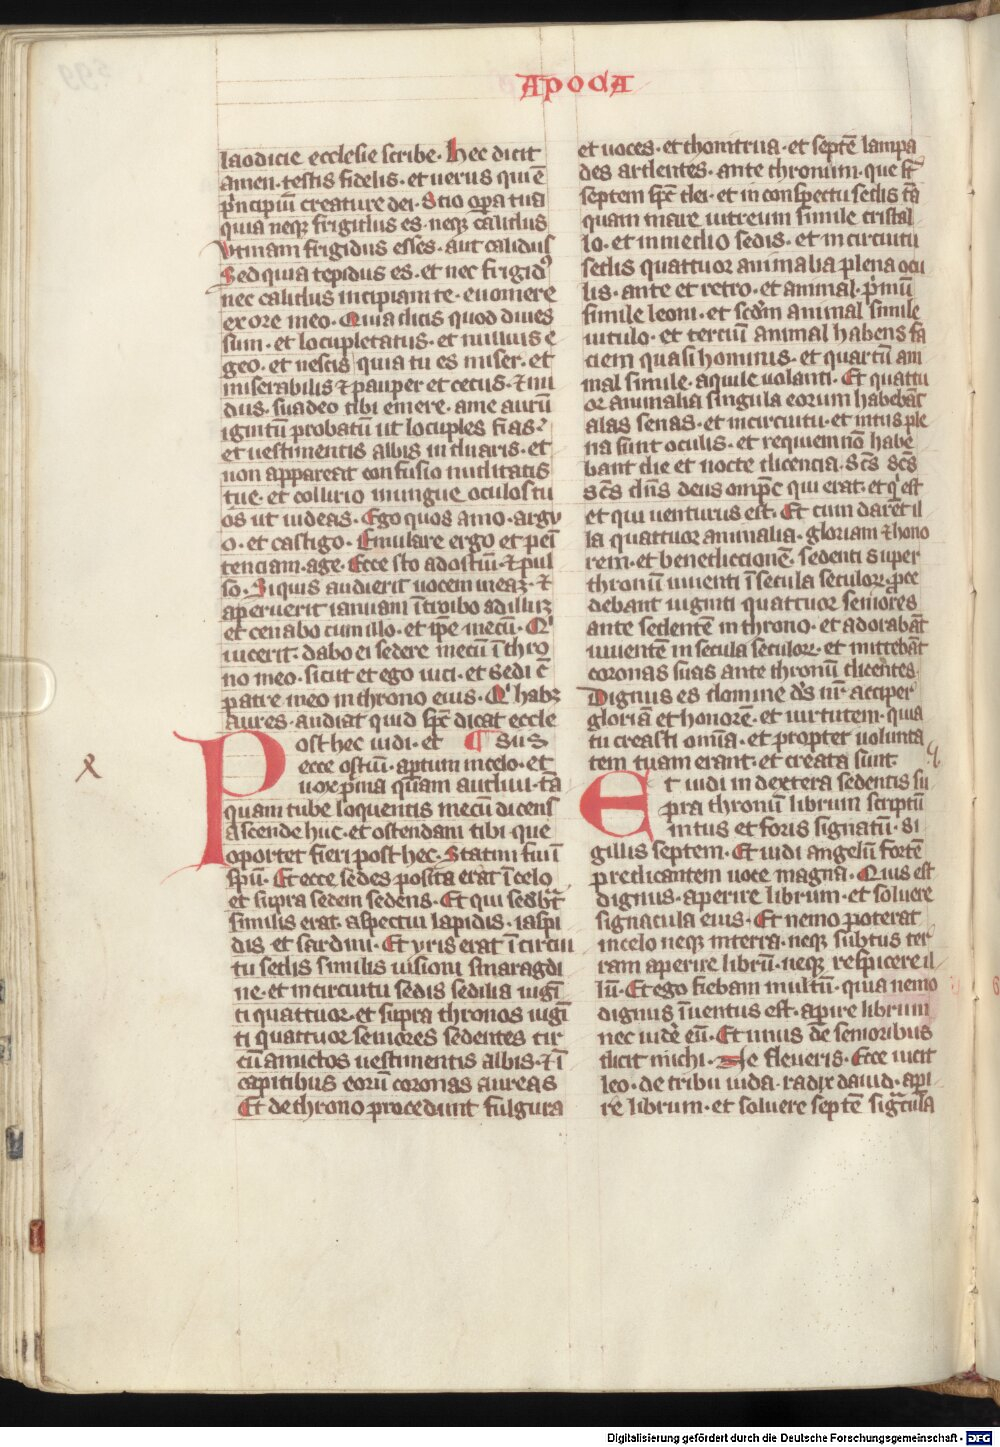 Apoca
laodicie ecclesie scribe · Hec dicit
amen · testis fidelis · et uerus qui ē
p̄ncipiū creature dei · Scio oꝑa tua
quia neqꝫ frigidus es · neqꝫ calidus
Vtinam frigidus esses · aut calidus
Sed quia tepidus es · et nec frigidꝰ
nec calidus incipiam te · euomere
ex ore meo · Quia dicis quod diues
sum · et locupletatus · et nullius e
geo · et nescis quia tu es miser · et
miserabilis ⁊ pauper et cecus · ⁊ nu
dus · suadeo tibi emere · a me aurū
ignitū probatū ut locuples fias
et uestimentis albis induaris · et
non appareat confusio nuditatis
tue · et collirio inungue oculos tu
os ut uideas · Ego quos amo · argu
o · et castigo · Emulare ergo et peni
tenciam · age · Ecce sto ad ostiū · ⁊ pul
so · Siquis audierit uocem meaꝫ · ⁊
aperuerit ianuam ītroibo ad illuꝫ
et cenabo cum illo · et ip̄e mecū · Qͥ
uicerit · dabo ei sedere mecū ī thro
no meo · sicut et ego uici · et sedi c̄
patre meo in throno eius · Qͥ habꝫ
aures · audiat quid sp̄c dicat eccle
Post hec uidi · et ¶ sus
ecce ostiū · aꝑtum in celo · et
uox pͥma quam audiui · tā
quam tube loquentis mecū dicens
Ascende huc · et ostendam tibi que
oportet fieri post hec · Statim fui ī
sp̄u · Et ecce sedes posita erat ī celo
et supra sedem sedens · Et qui sedebͣt
similis erat · aspectui lapidis · iaspi
dis et sardini · Et yris erat ī circui
tu sedis similis uisioni smaragdi
ne · et in circuitu sedis sedilia uigī
ti quattuor · et supra thronos uigī
ti quattuor seniores sedentes cir
cū amictos uestimentis albis · ⁊ ī
capitibus eorū coronas aureas
Et de throno procedunt fulgura
et uoces · et thonitrua · et septē lampa
des ardentes · ante thronum · que st̄
septem sp̄c dei · et in conspectu sedis tā
quam mare uitreum simile cristal
lo · et in medio sedis · et in circuitu
sedis quattuor animalia plena ocu
lis · ante et retro · et animal · pͥmū
simile leoni · et scd̄m animal simile
uitulo · et terciū animal habens fa
ciem quasi hominis · et quartū ani
mal simile · aquile uolanti · Et quattu
or animalia singula eorum habebāt
alas senas · et in circuitu · et intus ple
na sunt oculis · et requiem nō habe
bant die et nocte dicencia · sc̄s sc̄s
sc̄s dn̄s deus omp̄c qui erat · et qͥ est
et qui uenturus est · Et cum darēt il
la quattuor animalia · gloriam ⁊ hono
rem · et benediccionē · sedenti super
thronū uiuenti ī secula seculoꝝ · ꝓce
debant uiginti quattuor seniores
ante sedentē in throno · et adorabāt
uiuentē in secula seculoꝝ · et mittebāt
coronas suas ante thronū dicentes
Dignus es domine ds̄ nr̄ · accipere
gloriā et honorē · et uirtutem · quia
tu creasti omīa · et propter uolunta
tem tuam erant · et creata sunt
Et uidi in dextera sedentis su
pra thronū librum scriptū
intus et foris signatū · si
gillis septem · Et uidi angelū fortē
predicantem uoce magna · Quis est
dignus · aperire librum · et soluere
signacula eius · Et nemo poterat
in celo neqꝫ in terra · neqꝫ subtus ter
ram aperire librū · neqꝫ respicere il
lū · Et ego flebam multū · quia nemo
dignus īuentus est · aꝑire librum
nec uidē eū · Et unus de senioribus
dicit michi · Ne fleueris · Ecce uicit
leo · de tribu iuda · radix dauid · aꝑi
re librum · et soluere septē signacula